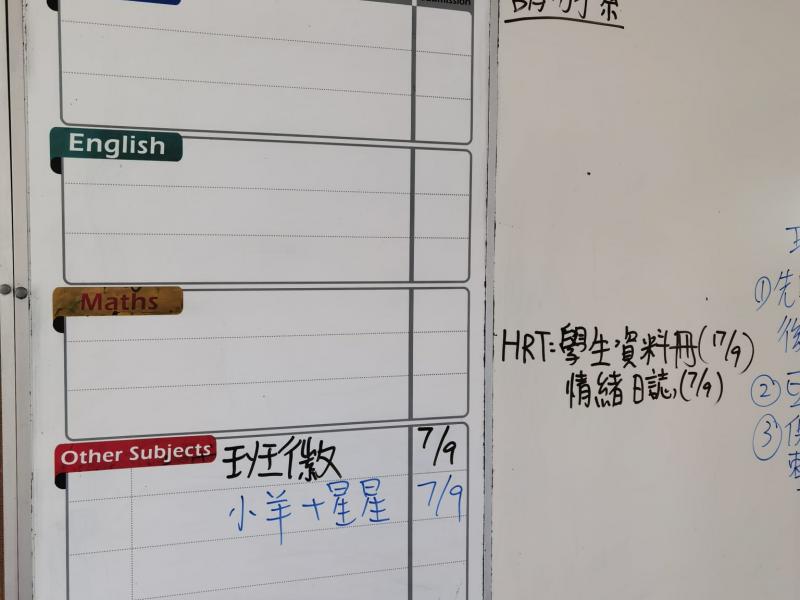 English
Maths
Other Subjects
班徽 7/9
小羊+星星 7/9
HRT:學生資料冊(17/9)
情緒日誌,(7/9)
①先
後
②
③